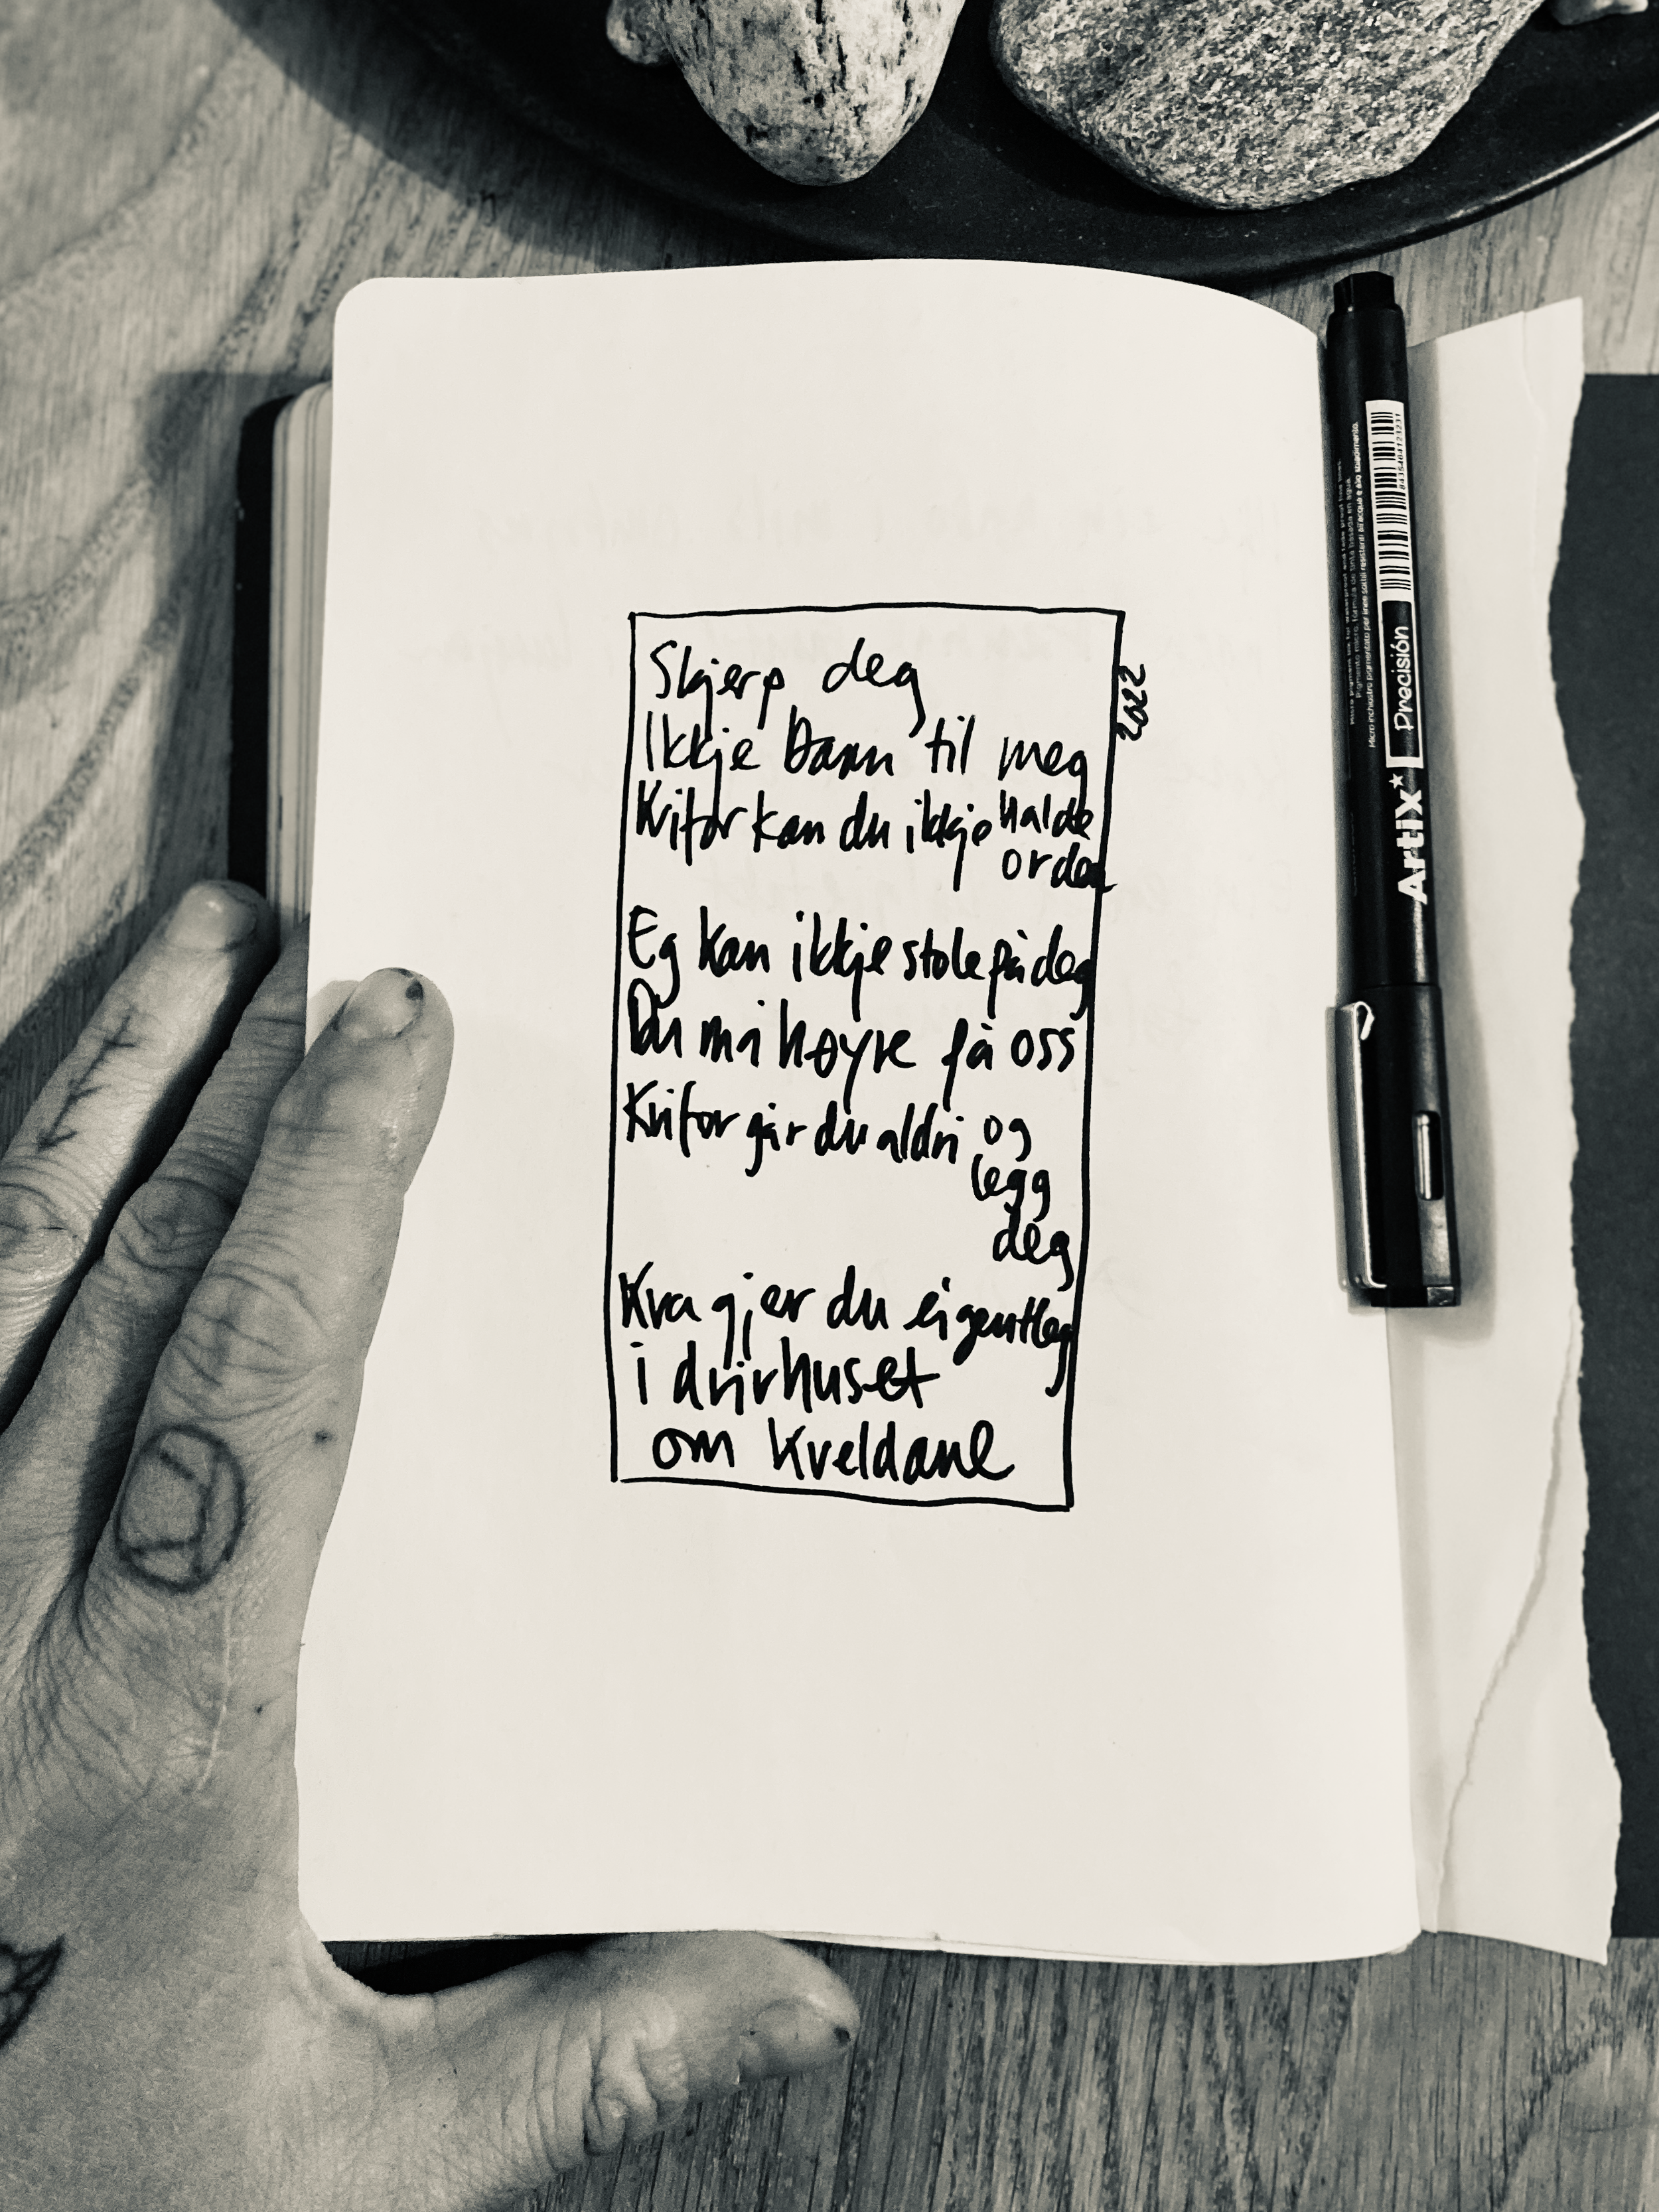 Skjerp deg
Ikkje bann til meg
Kvifor kan du ikkje halde
orden
Eg kan ikkje stole på deg
Du må høyre på oss
Kvifor går du aldri og
legg
deg
Kva gjer du eigentleg
i drivhuset
om kveldane
2022
Artix Precisión
8435484123231